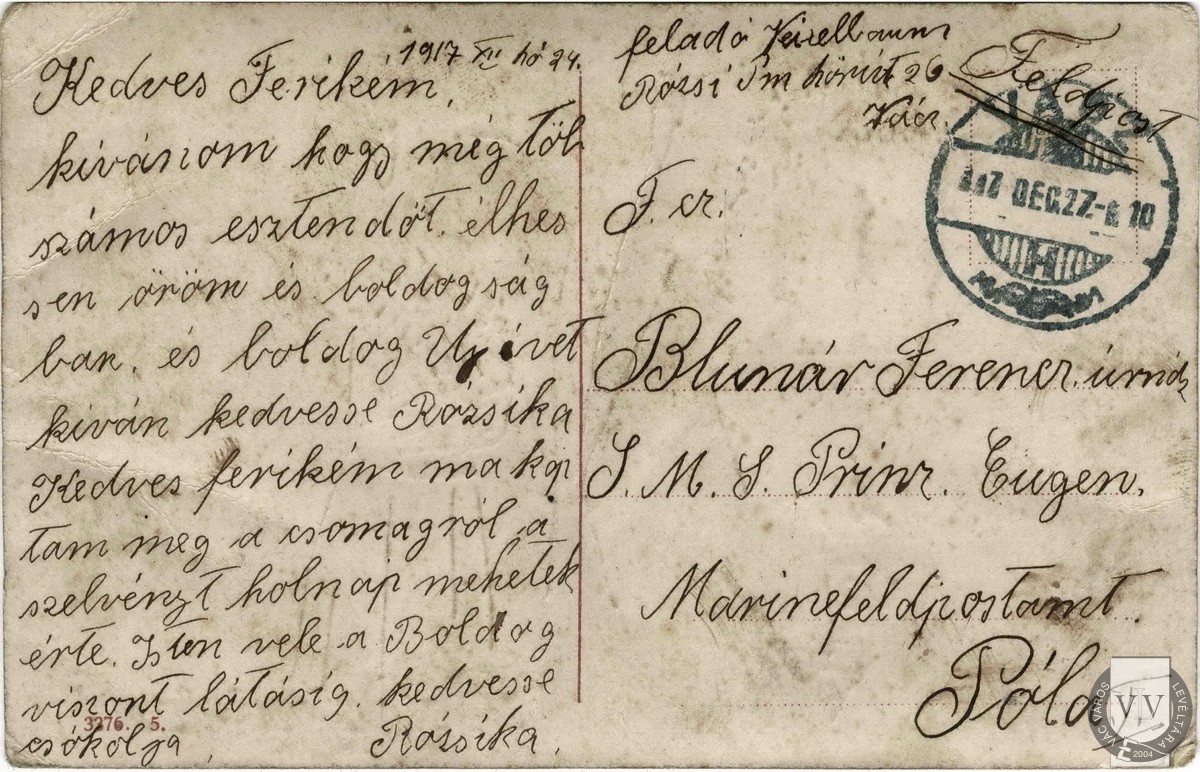 1917 XII hó 24.
Kedves Ferikém,
kivánom hogy még töb
számos esztendőt élhes
sen öröm és boldogság
ban. és boldog Uj évet
kiván kedvesse Rózsika
Kedves ferikém ma kap
tam meg a csomagról a
szelvényt holnap mehetek
érte. Isten vele a Boldog
viszont látásig. kedvesse
csókolja Rózsika.
3276. 5.
feladó
Rózsi Im körút 26
Vácz.
Feldpost
917 DEC.27
F. cz.
Blunár Ferencz. úrnak
S. M. S. Prinz. Eugen.
Marinefeldpostamt.
Póla
VÁC VÁROS LEVÉLTÁRA
VV
2004